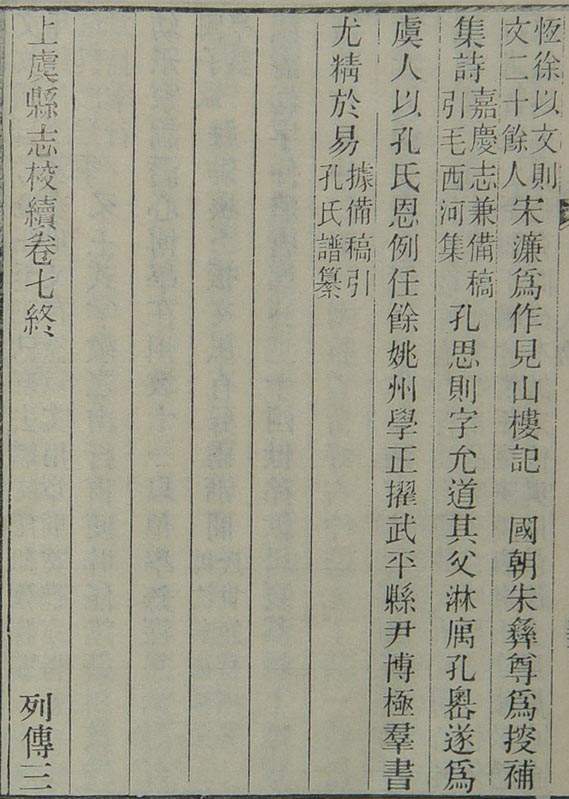 恆徐以文則
文二十餘人
宋濂爲作見山樓記　國朝朱彝尊爲補
集詩
嘉慶志兼備稿
引毛西河集
孔思則字允道其父淋庽孔嶴遂爲
虞人以孔氏恩例任餘姚州學正擢武平縣尹博極羣書
尤精於易
據備稿引
孔氏譜纂
上虞縣志校續卷七終　列傳三